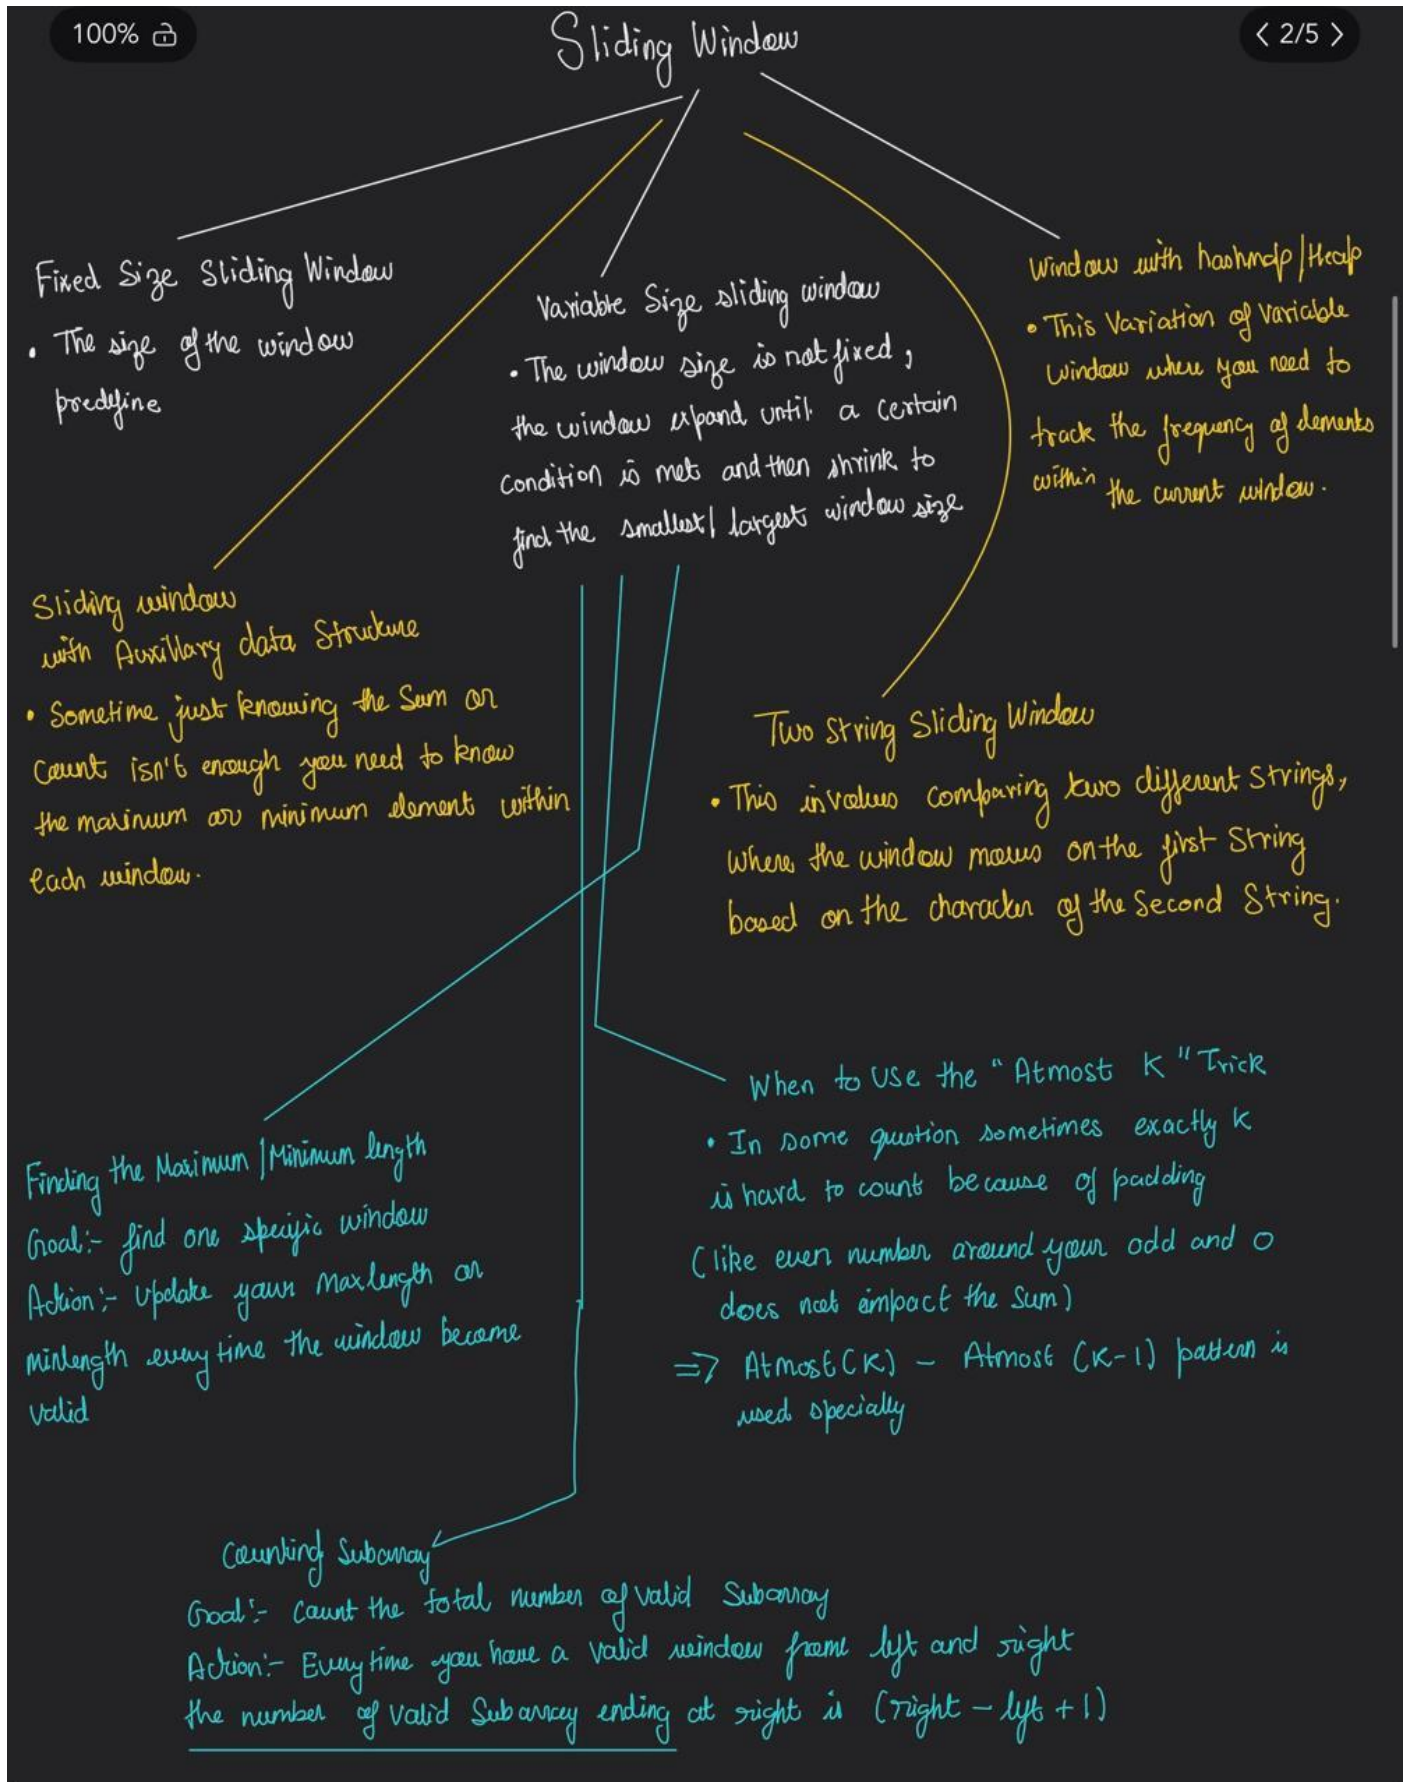 100%
< 2/5 >
Sliding Window
Fixed Size Sliding Window
• The size of the window
predefine
Variable Size sliding window
• The window size is not fixed,
the window expand until a certain
condition is met and then shrink to
find the smallest/largest window size
Window with hashmap/Heap
• This Variation of Variable
Window where you need to
track the frequency of elements
within the current window.
Sliding window
with Auxillary data Structure
• Sometime just knowing the Sum or
Count isn't enough you need to know
the maximum or minimum element within
each window.
Two String Sliding Window
• This involves comparing two different Strings,
where the window moves on the first String
based on the character of the Second String.
When to Use the "Atmost K" Trick
• In some question sometimes exactly K
is hard to count because of padding
(like even number around your odd and 0
does not impact the Sum)
=> Atmost(K) - Atmost (K-1) pattern is
used specially
Finding the Maximum/Minimum length
Goal:- find one specific window
Action:- Update your maxlength or
minlength every time the window become
valid
Counting Subarray
Goal:- Count the total number of valid Subarray
Action:- Every time you have a valid window from left and right
the number of valid Subarray ending at right is (right - left + 1)